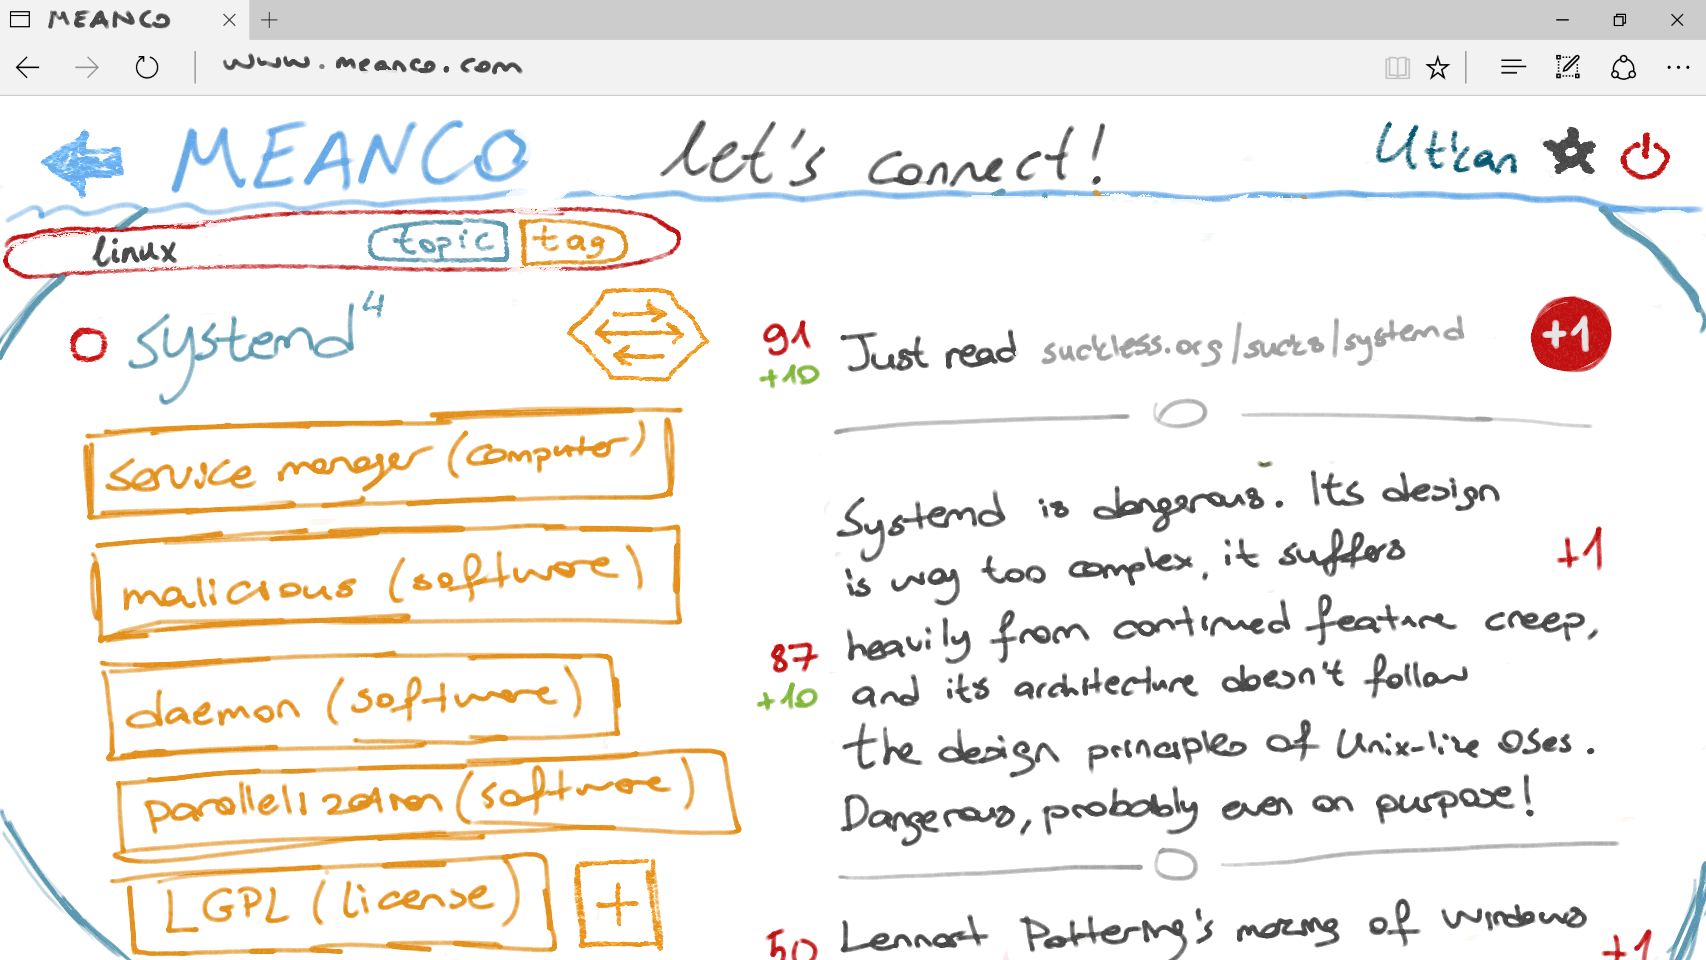 MEANCO
www.meanco.com
MEANCO let's connect! Utkan
linux topic tag
systemd 4
service manager (computer)
malicious (software)
daemon (software)
parallelization (software)
LGPL (license) +
91
+10
Just read suckless.org/sucks/systemd
+1
Systemd is dangerous. Its design
is way too complex, it suffers
heavily from continued feature creep,
and its architecture doesn't follow
the design principles of Unix-like OSes.
Dangerous, probably even on purpose!
87
+10
+1
50
Lennart Pottering's of Windows
+1